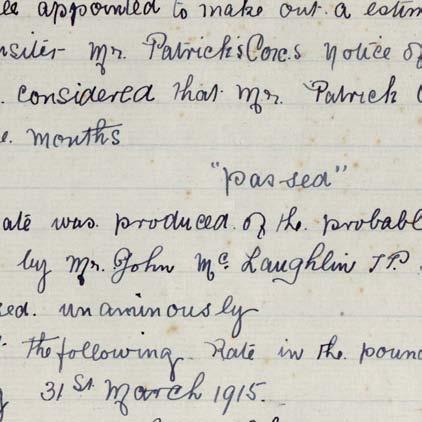 appointed to make out a estim
Mr. Patrick's Coxs Notice of
considered that Mr. Patrick C
months
"passed"
ate was produced of the probabl
by Mr. John Mc Laughlin J.P.
sed. unaminously
the following Rate in the poun
31st March 1915.